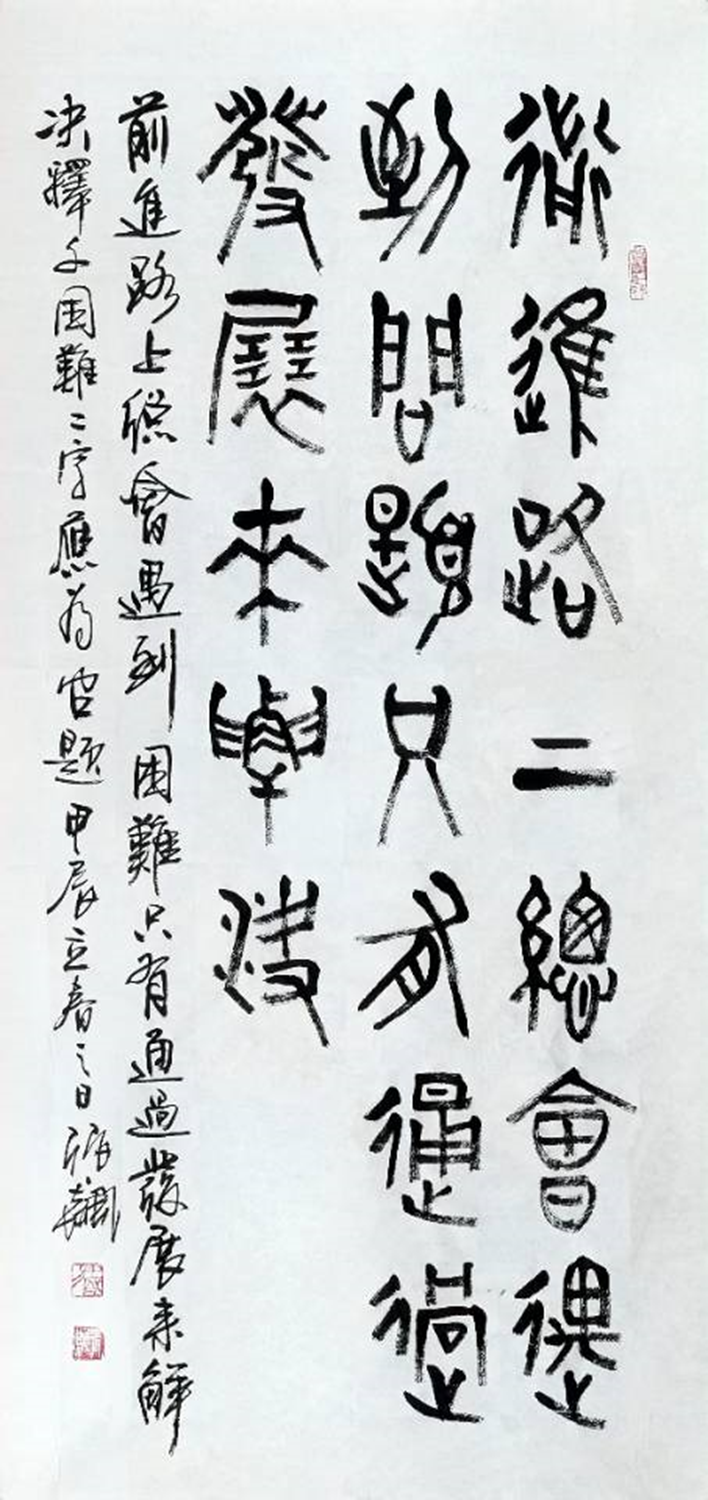 前進路上總會遇
到問題只有通過
發展來解決
前進路上總會遇到困難只有通過發展来解
决釋文困難二字應為問題甲辰立春之日